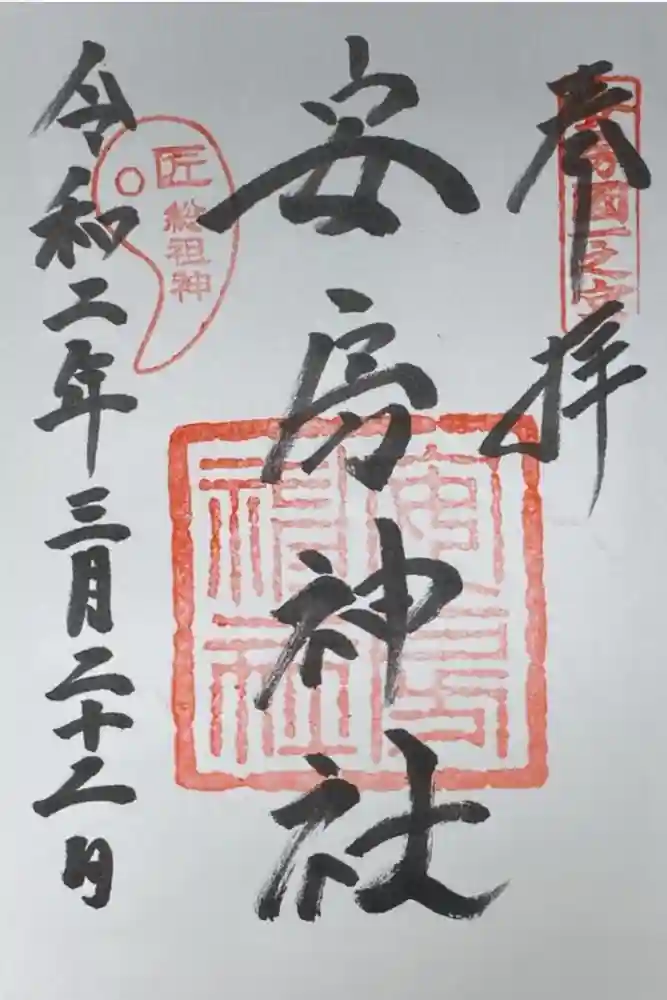 奉拝
安房國一之宮
安房神社
安房神社
匠 総祖神
令和二年三月二十二日